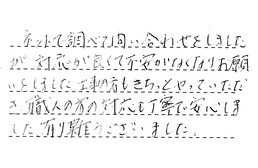 ネットで調べて問い合わせをしました
が対応が良くて不安がなくなりお願
いをしました。工事の方もきちっとやっていただ
き、職人の方の対応も丁寧で安心しま
した。有り難うございました。